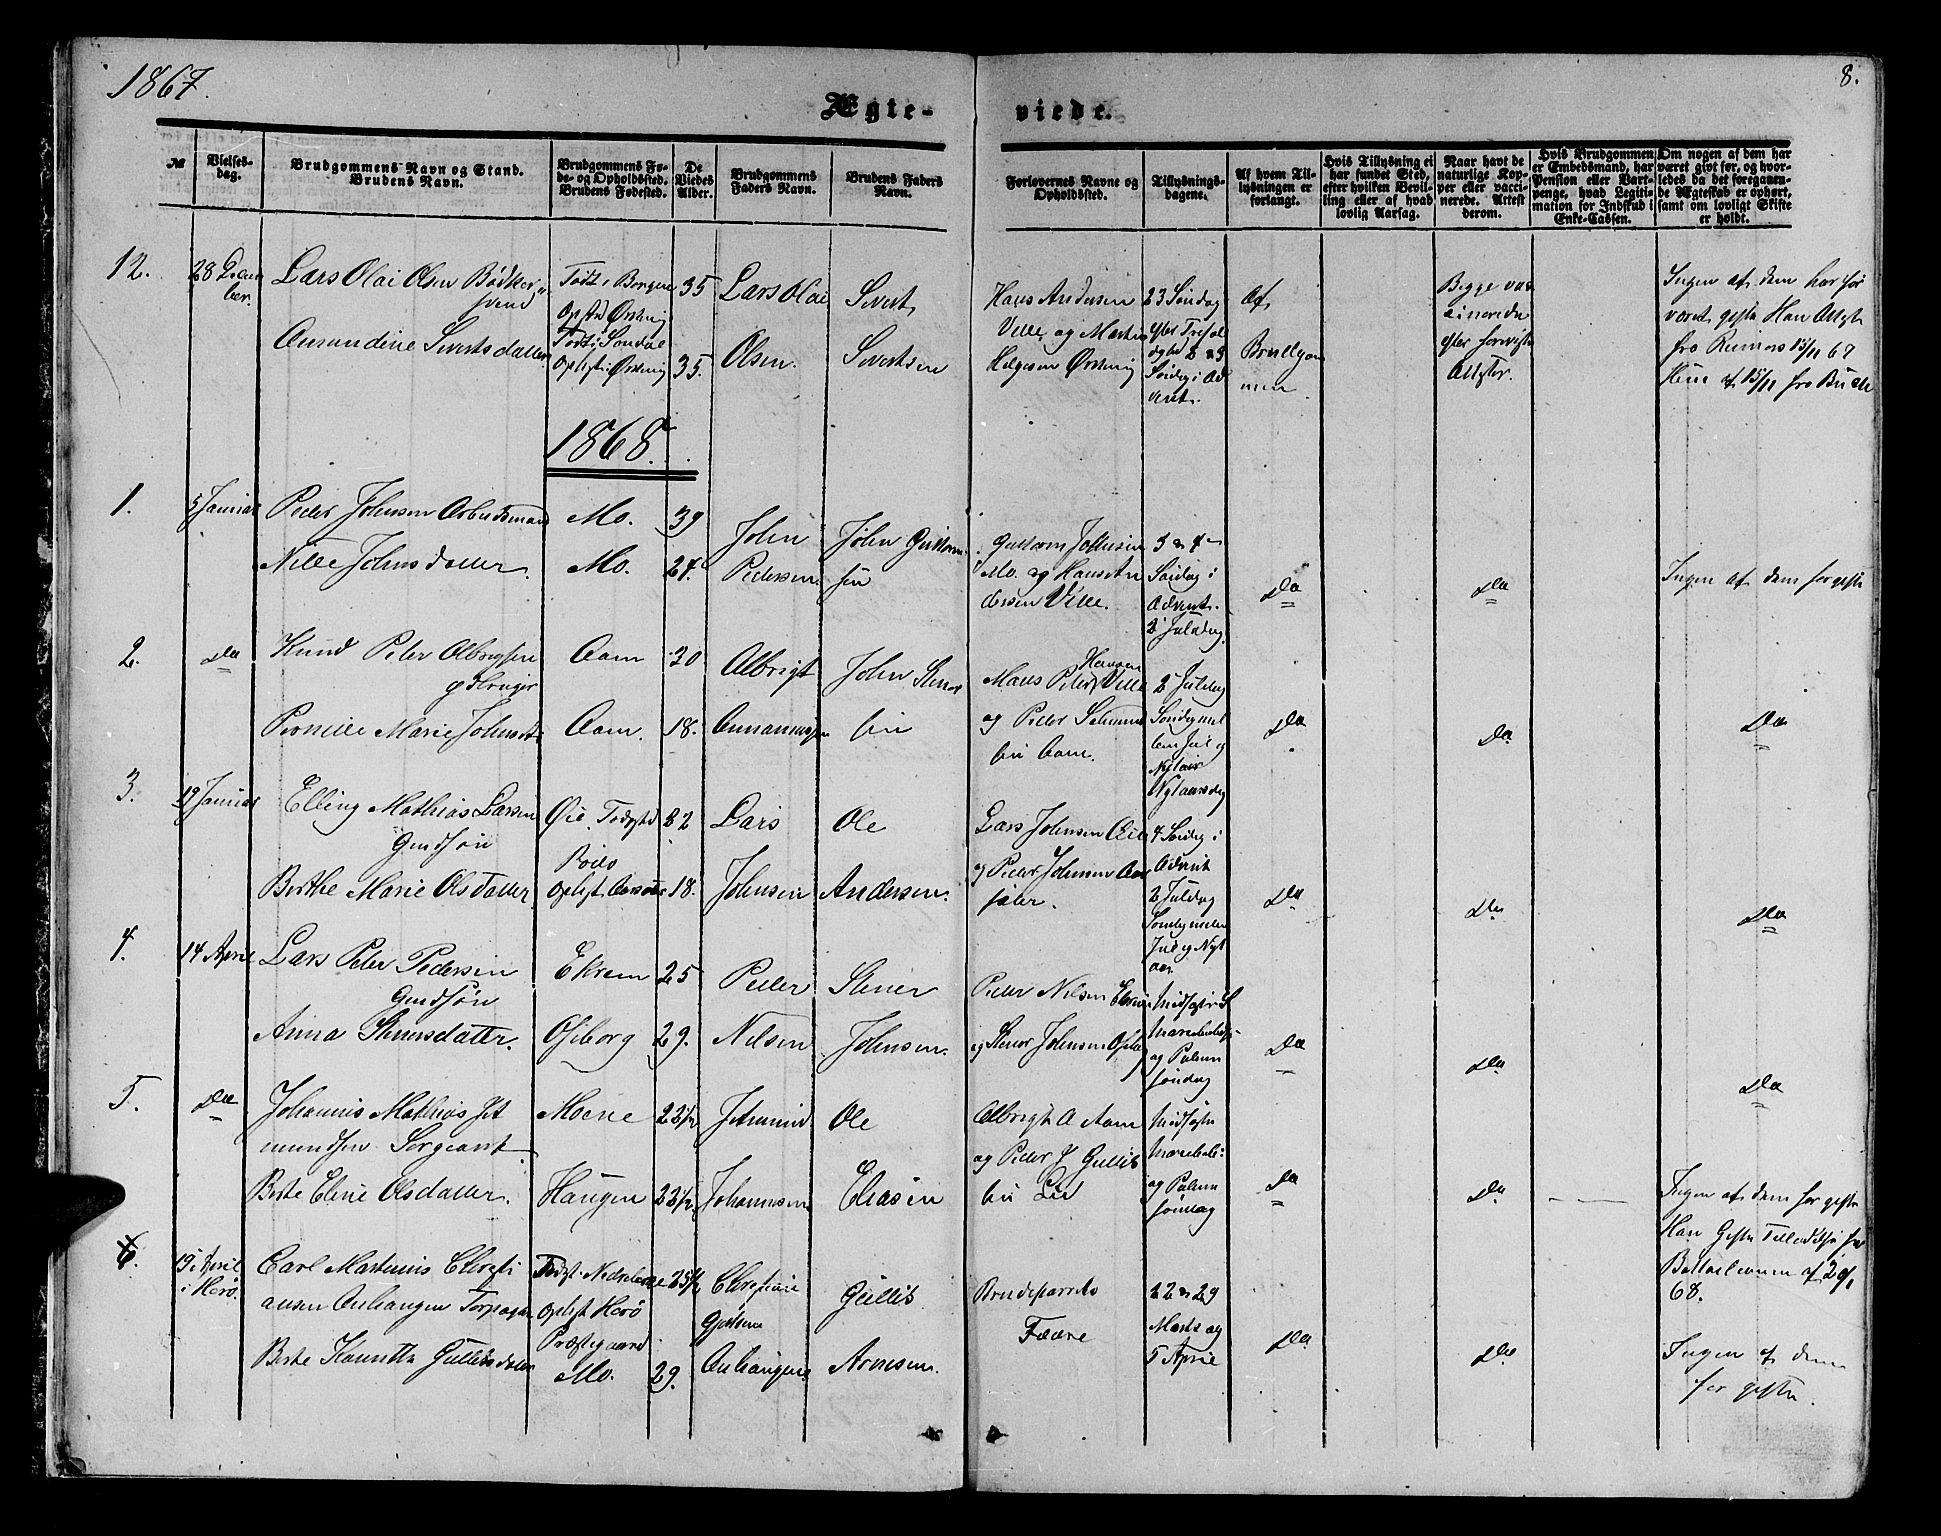 1867.
8.
Ægte-
viede.
№
Vielses-
dag.
Brudgommens Navn og Stand.
Brudens Navn.
Brudgommens Fø-
de- og Opholdssted.
Brudens Fødested.
De
Viedes
Alder.
Brudgommens
Faders Navn.
Brudens Faders
Navn.
Forlovernes Navne og
Opholdssted.
Tillysnings-
dagene.
Af hvem Til-
lysningen er
forlangt.
Hvis Tillysning ei
har fundet Sted,
efter hvilken Bevil-
ling eller af hvad
lovlig Aarsag.
Naar havt de
naturlige Kop-
per eller vacci-
nerede. Attest
derom.
Hvis Brudgommen
er Embedsmand, har
Pension eller Vart-
penge, hvad Legiti-
mation for Indskud i
Enke-Cassen.
Om nogen af dem har
været givt før, og hvor-
ledes da det foregaaen-
de Ægteskab er ophørt,
samt om lovligt Skifte
er holdt.
12.
28 Decem
ber.
Lars Olai Olsen Bødker
svend
Amundine Sivertsdatter
Født i Bergen
Opholdst Ørsteig
Født i
Opholdst i Ørsteig
35
35.
Lars Olai
Olsen.
Sivert
Sivertsen
Hans Andersen
Velle og Martin
Helgesen Ørsteig
23 Søndag
efter Trefol
dighed 2 &
Søndag i Ad
vent.
Af
Brudgom
men
Begge vac
cinerede
efter foreviste
Attester.
Ingen af dem har før
været gifte Han Attest
fra 15/11 67
af 15/11 fra
1868.
1.
5 Januar
Peder Johnsen Arbeidsmand
Nille Johnsdatter.
Mo.
Mo.
39
24.
John
Pedersen
John Guttorm
sen
Guttorm Johnsen
Mo. og Hans An
dersen Velle.
3 & 4
Søndag i
Advent.
2 Juledag
Do
Do
Ingen af dem før gifte
2.
Do
Knud Peter Albrigtsen
Pernille Marie Johnsdt
Aam
Aam.
30
18.
Albrigt
Amundsen
John Steiner
sen
Hansen
Hans Peter Velle
og Peder
sen Aam.
2 Juledag
Søndag mel
lem Jul og
Nytaar
Nytaarsdag
Do
Do
Do
3.
19 Januar
Elling Mathias Larsen
Gaardsøn
Berthe Marie Olsdatter
Øie. Fødested
Opholdst.
32
18.
Lars
Johnsen
Ole
Andersen.
Lars Johnsen Øie
og Peder Johnsen Aar
sæter.
4 Søndag i
Advent
2 Juledag
Søndag mellem
Jul og Nyt
aar
Do
Do
Do
4.
14 April
Lars Peter Pedersen
Gaardsøn
Anna Steinersdatter.
Ekrem
Osborg
25
29.
Peder
Nilsen
Steiner
Johnsen.
Peder Nilsen Ekrem
og Steiner Johnsen
Midfaste S
Mariebebud
og Palme
søndag
Do
Do
Do
5.
Do
Johannes Mathias Jet
mundsen Sergeant
Berte Eline Olsdatter.
Moene
Haugen
22½
22½
Jetmund
Johannesen
Ole
Eliasen
Albrigt A Aam
og Peder P Gullik
sen Lid
Midfaste
Mariebebud
og Palme
søndag
Do
Do
Ingen af dem før gifte
Han Gifte Tilladelse fra
Batteilonen af 29/1
68.
6.
19 April
i Herø.
Carl Martinus Christi
ansen Anhaugen
Berte Gulliksdatter
Fødest.
Opholdst Herø
Præstegaard
Mo.
25½
29.
Christian
Anhaugen.
Gullik
Arnesen.
Brudeparrets
Fædre
22 & 29
Marts og
5 April
Do
Do
Ingen af dem
før gifte.